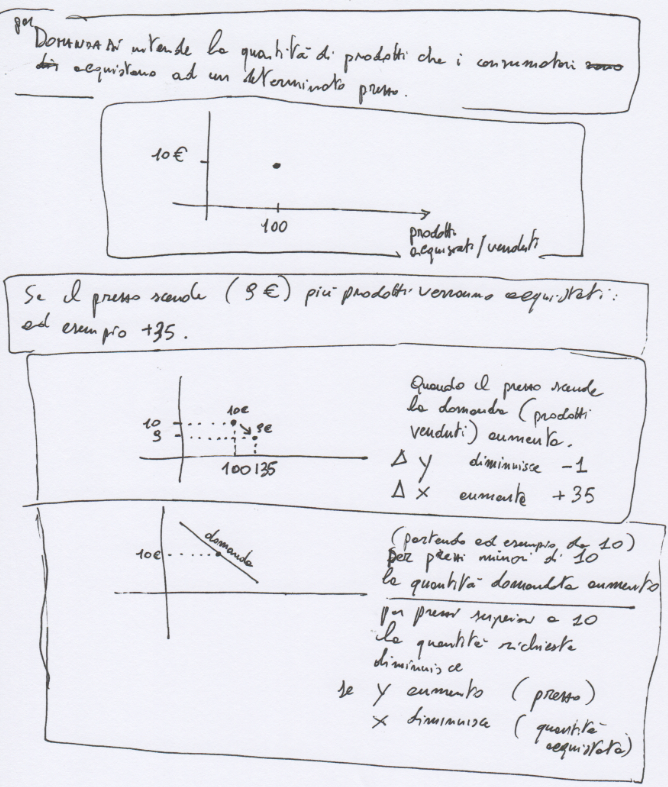 per
DOMANDA si intende la quantità di prodotti che i consumatori
acquistano ad un determinato prezzo.
10 €
100
prodotti
acquistati / venduti
Se il prezzo scende (9 €) più prodotti verranno acquistati:
ad esempio +35.
10€
10
9€
9
100 135
Quando il prezzo scende
la domanda (prodotti
venduti) aumenta.
Δ Y diminuisce -1
Δ X aumenta +35
domanda
10€
(partendo ad esempio da 10)
per prezzi minori di 10
la quantità domandata aumenta
per prezzi superiori a 10
la quantità richiesta
diminuisce
se Y aumenta (prezzo)
X diminuisce (quantità
acquistata)